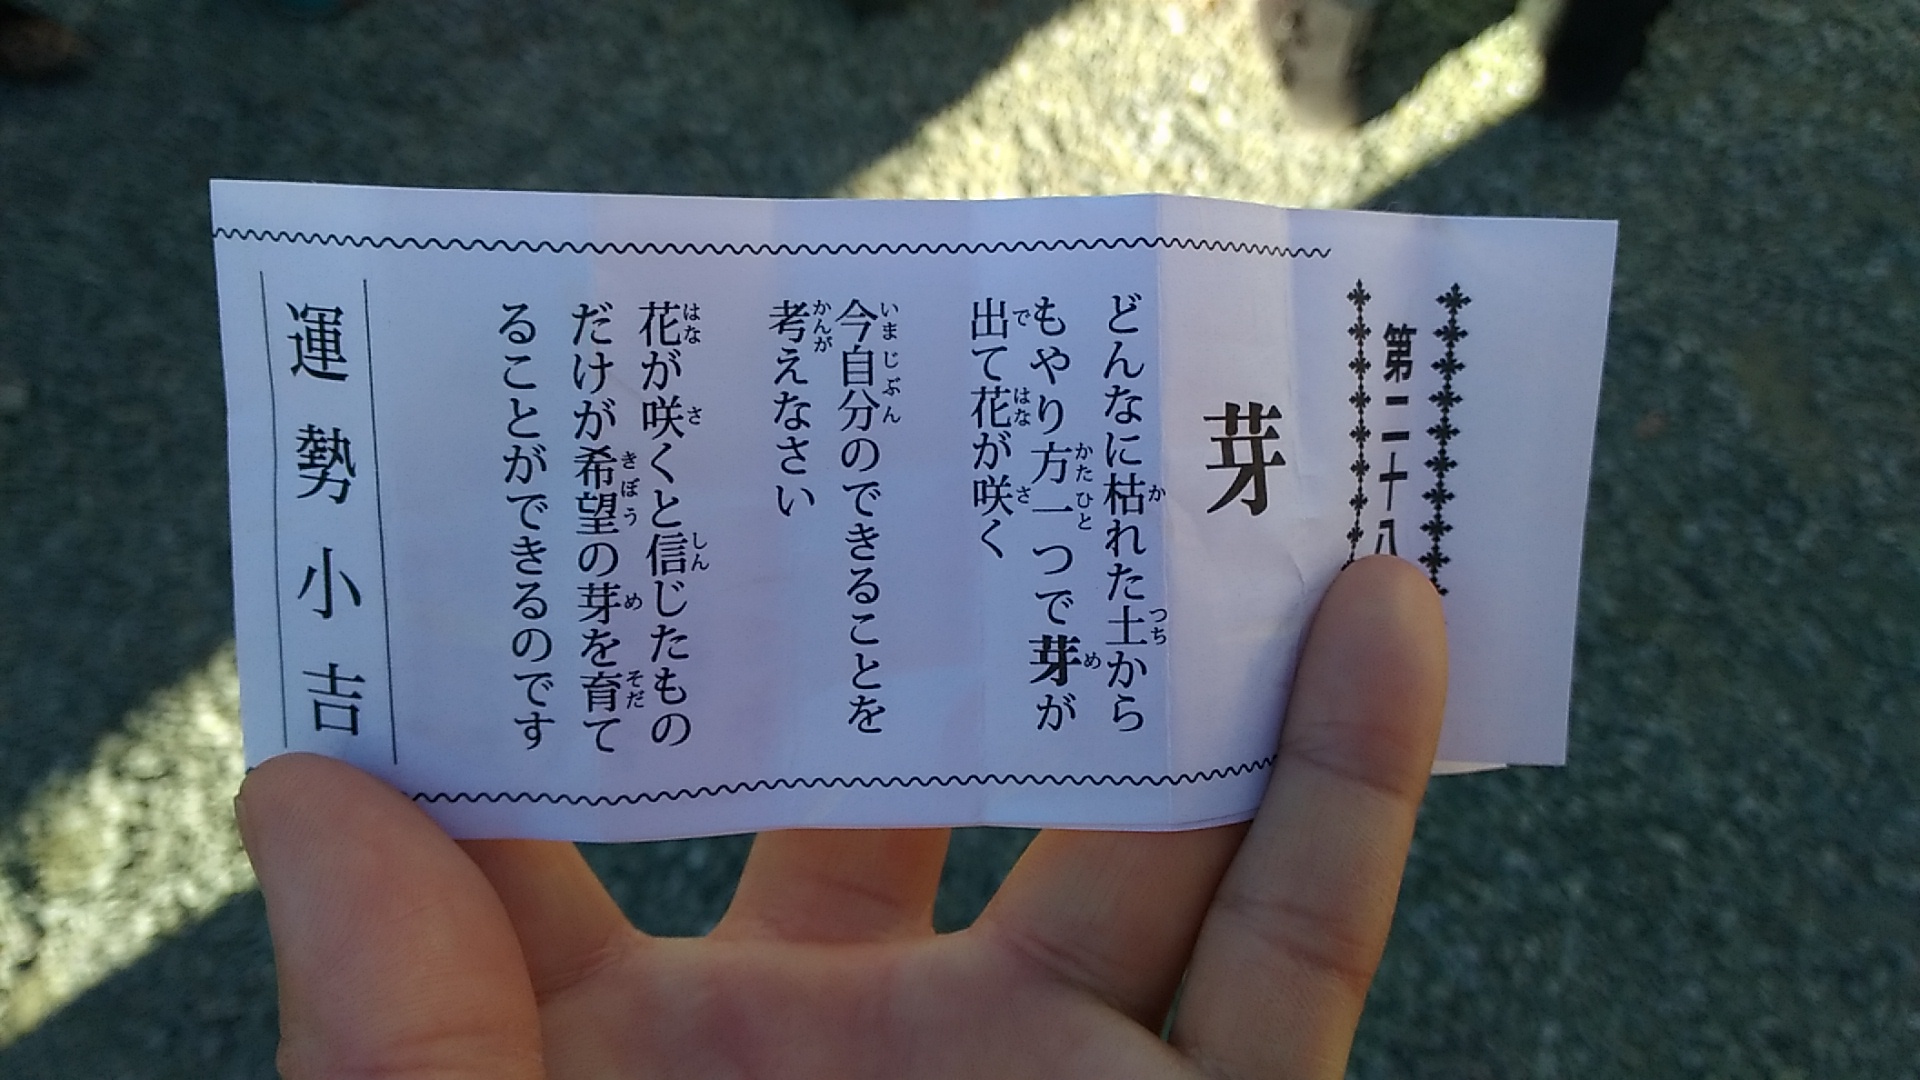 第二十八
芽
どんなに枯れた土から
もやり方一つで芽が
出て花が咲く
今自分のできることを
考えなさい
花が咲くと信じたもの
だけが希望の芽を育て
ることができるのです
運勢小吉